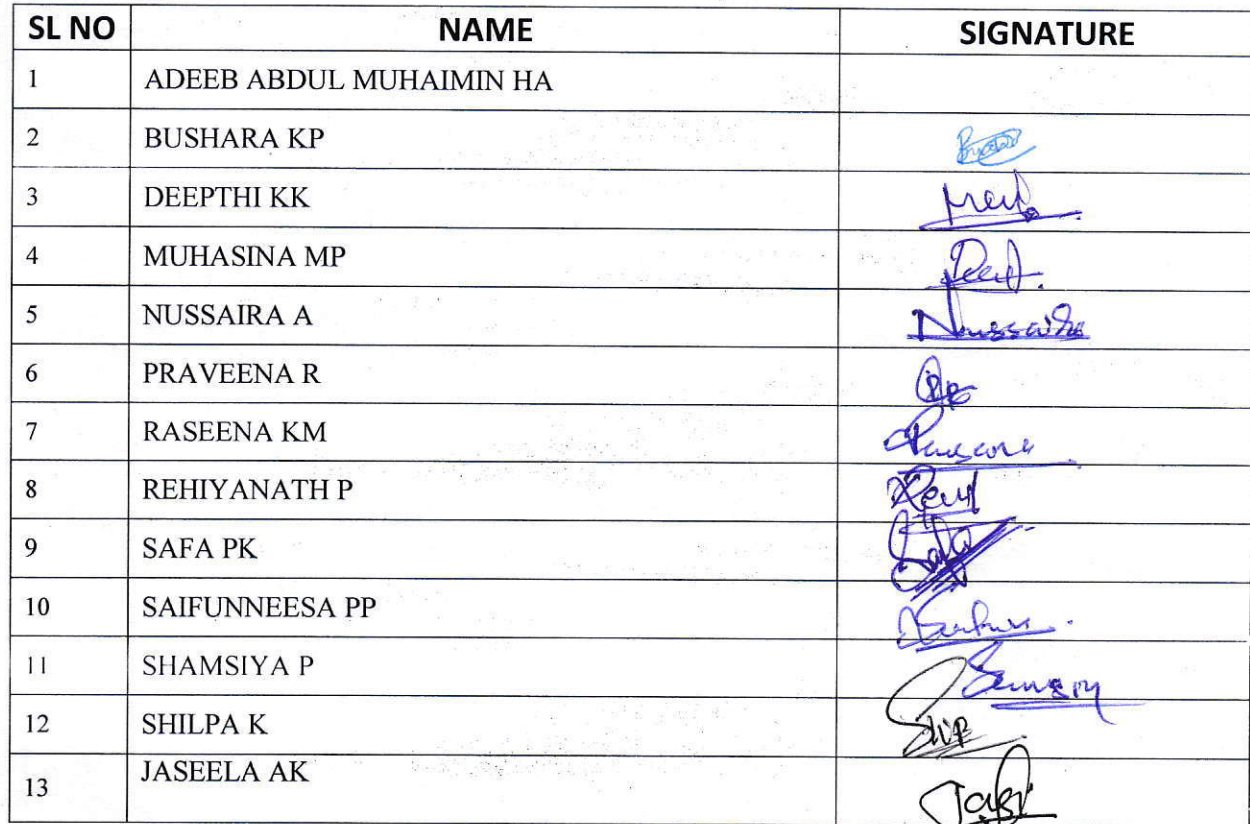 SL NO NAME SIGNATURE
1 ADEEB ABDUL MUHAIMIN HA
2 BUSHARA KP
3 DEEPTHI KK
4 MUHASINA MP
5 NUSSAIRA A Nussaira
6 PRAVEENA R
7 RASEENA KM
8 REHIYANATH P
9 SAFA PK Safa
10 SAIFUNNEESA PP
11 SHAMSIYA P
12 SHILPA K
13 JASEELA AK